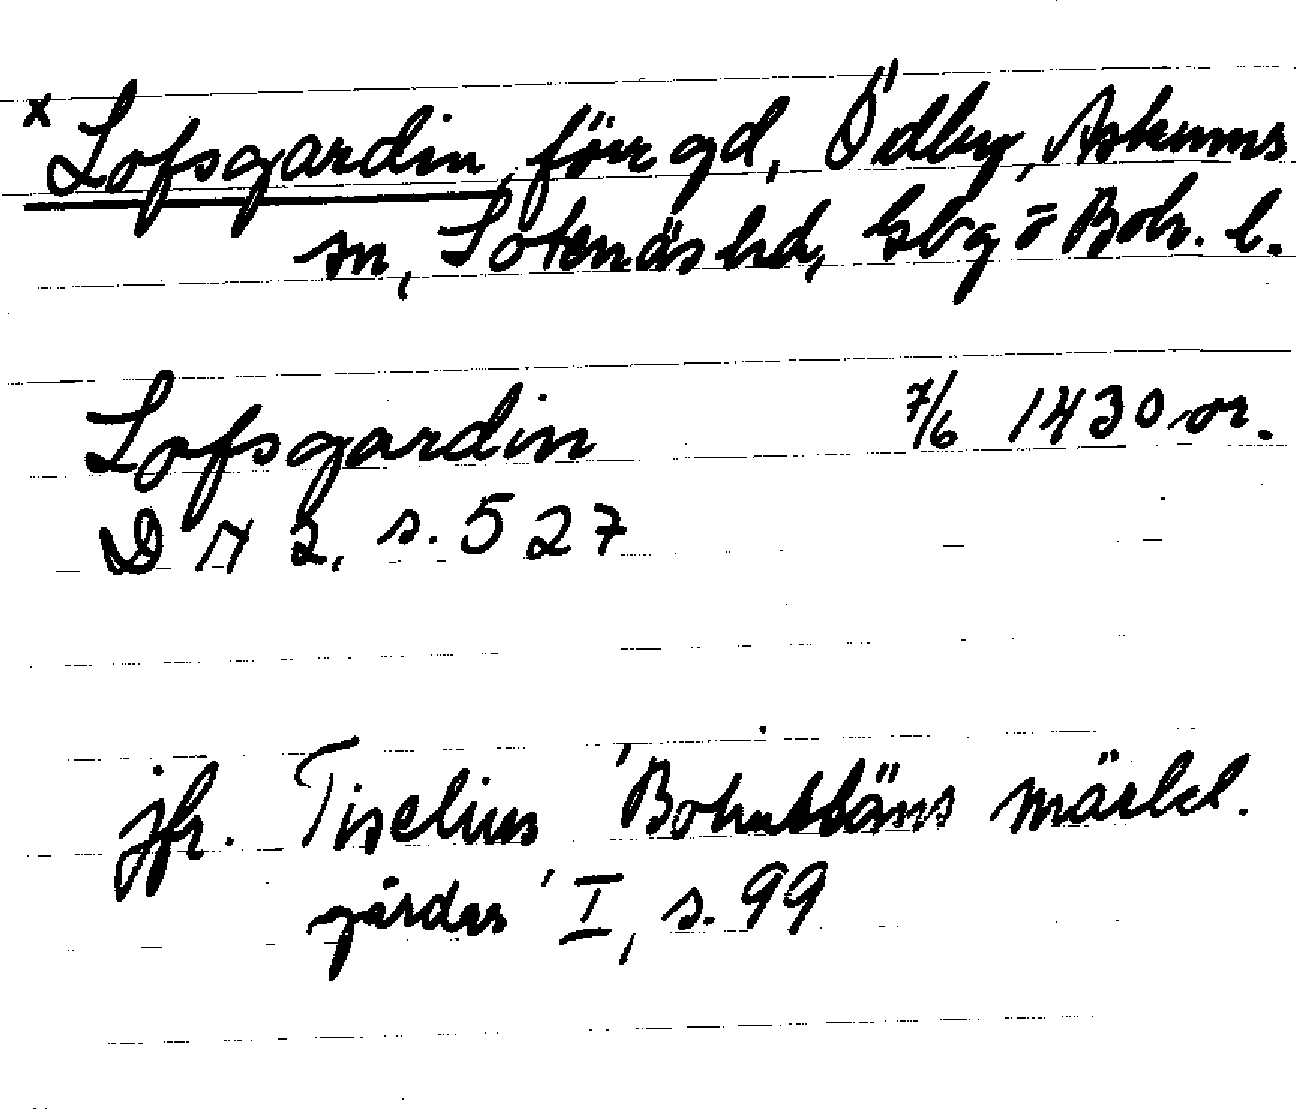 x Lofsgardin, förr gd, Ödby, Askums
sn, Sotenäs hd, Gbg o Boh. l.
Lofsgardin 7/6 1430 or.
DN 2, s. 527
jfr. Tiselius 'Bohusläns märkl.
gårdar' I, s. 99